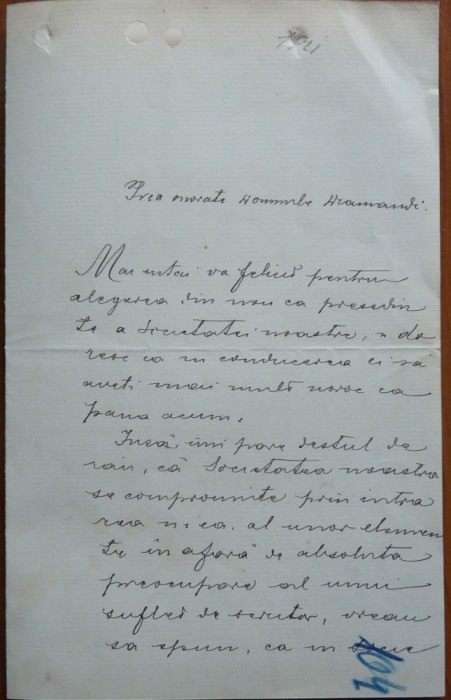 Prea onorate Domnule Diamandi.
Mai intai va felicit pentru
alegerea din nou ca presedin
te a Societatei noastre, o do
resc ca in conducerea ei sa
aveti mai mult noroc ca
pana acum.
Insă imi pare destul de
rau, că Societatea noastra
se compromite prin intra
rea in ea al unor elemen
te in afară de absoluta
preocupare al unui
suflet de scriitor, vreau
sa spun, ca in
104